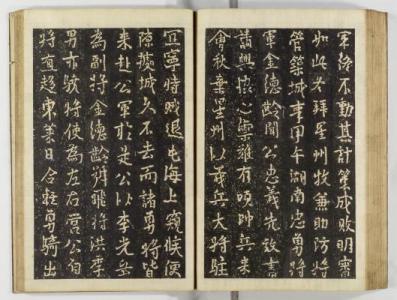 軍終不動其計策成敗明審
如此君拜星州牧兼助防將
管築城事甲午湖南忠勇將
軍金德齡聞公忠義先致書
請與協心禦難有帥兵来
會秋棄星州以義兵大將駐
宜寧時賊退屯海上窺候便
隙據城久不去而諸勇將皆
来赴公軍於是公以李光岳
為副將金德齡飛將洪季
男亦號將使為左右營公自
將直趨東萊日合輕勇騎出